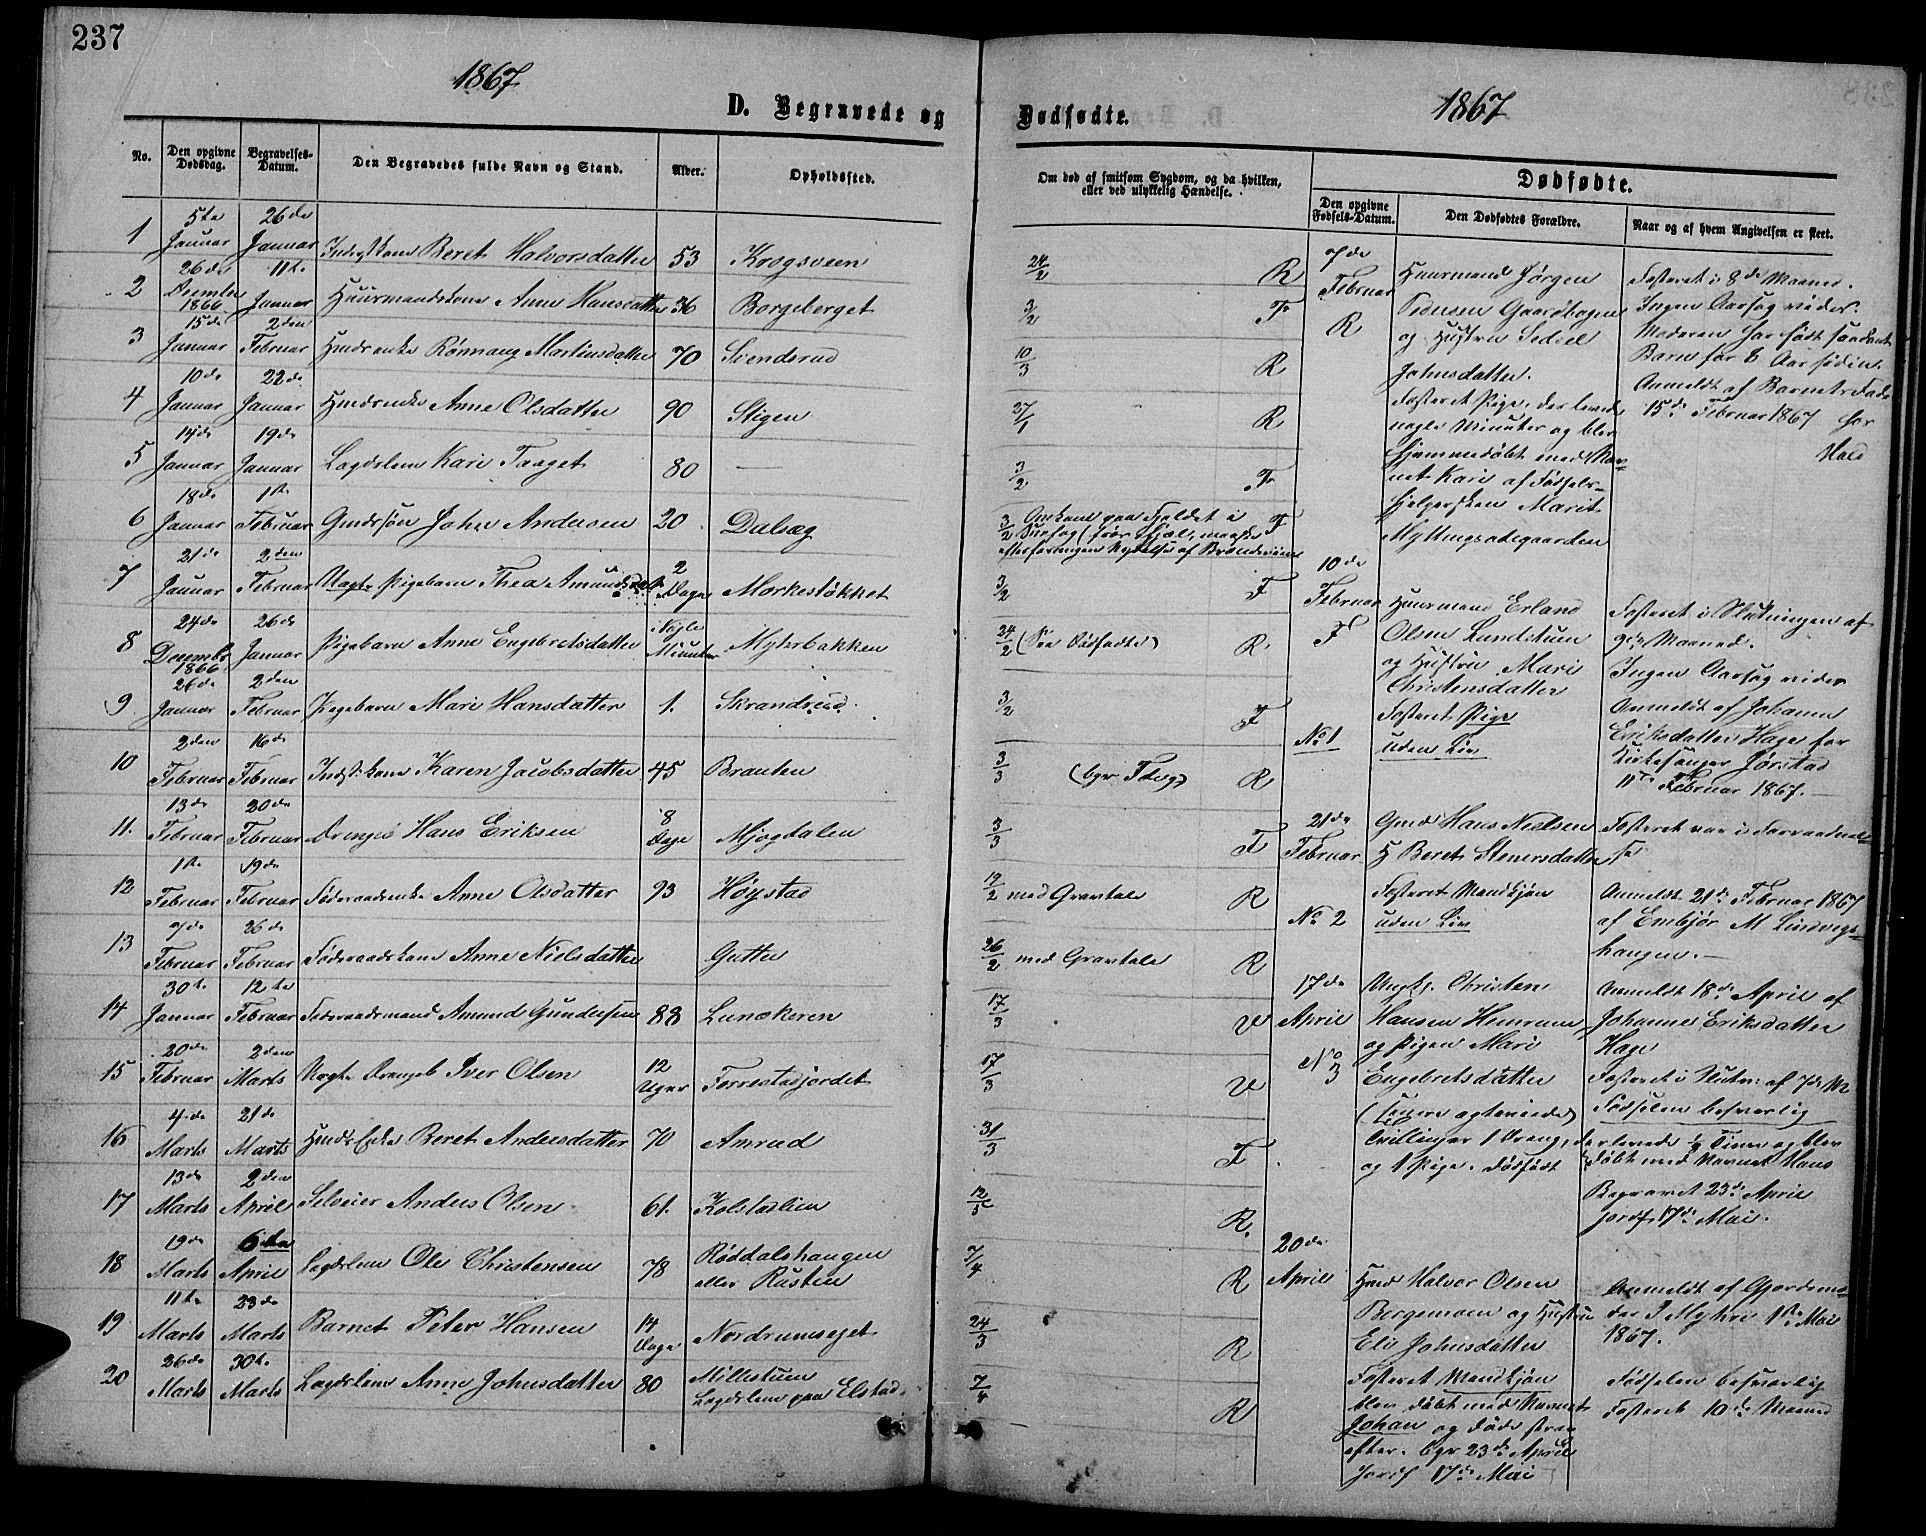 237
1867
D. Begravede og
No.
Den opgivne Dødsdag.
Begravelses-Datum.
Den Begravedes fulde Navn og Stand.
Alder.
Opholdssted.
1 5te Januar 26de Januar Beret Halvorsdatter 53 Krogsveen
2 26de 1866 11te Januar Huusmandskone Anne Hansdatter 36 Borgeberget
3 15de Januar 2den Februar Rønnaug Martinsdatter 70 Svendsrud
4 10de Januar 22de Januar Anne Olsdatter 90 Stigen
5 14de Januar 19de Januar Lægdslem Kari Taaget 80 —
6 18de Januar 1ste Februar Gmdssøn Johan Andersen 20 Dalsæg
7 21de Januar 2den Februar Uægte Pigebarn Thea 2 Dage Morkestøkket
8 24de Decembr 1866 26de Januar Pigebarn Anne Engebretsdatter Nogle Minuter Myhrbakken
9 26de Januar 2den Februar Pigebarn Mari Hansdatter 1. Skrandrud
10 2den Februar 16de Februar Indst. kone Karen Jacobsdatter 45 Brauten
11. 13de Februar 20de Februar Hans Eriksen 8 Dage Mjogdalen
12 1ste Februar 19de Februar Føderaadsenke Anne Olsdatter 93 Høystad
13 7de Februar 26de Februar Føderaadskone Anne Nielsdatter Gutten
14 30te Januar 12te Februar Føderaadsmand Amund Gundersen 88
15 20de Februar 2den Marts Uægte Drengeb Iver Olsen 12 Uger Forrestadjordet
16 4de Marts 21de Marts Beret Andersdatter 70 Amrud
17 13de Marts 2den April Selveier Anders Olsen 61. Kolstadlien
18 19de Marts 6te April Lægdslem Ole Christensen 78 Røddalshaugen
eller Rusten
19 11te Marts 23de Marts Barnet Peter Hansen 14 Dage Nordrumseget
20 26de Marts 30te Marts Lægdslem Anne Johnsdatter 80 Millestuen
Lægdslem paa Elstad
Dødfødte.
1867
Om død af smitsom Sygdom, og da hvilken, eller ved ulykkelig Hændelse.
Dødfødte.
Den opgivne Fødsels-Datum.
Den Dødfødtes Forældre.
Naar og af hvem Angivelsen er skeet.
24/2 R
3/2 Fr
10/3 R
27/1 R
3/2 Fr
3/2 Omkom paa Fjeldet i F
3/2 F
24/2 (See Dødfødte) R
3/2 F
3/3 R
3/3 F
19/2 med Gravtale R
26/2 med Gravtale R
17/3 V
17/3 V
31/3 F
12/5 R.
7/4 R
24/3 R
7/4 R
7de Februar
R
Huusmand Jørgen
Pedersen Gaardhagen
og Hustru
Johnsdatter.
Fosteret Pige, der levede
nogle Minuter og blev
hjemmedøbt med Nav-
net Kari af Fødsels-
hjelpersken Marit
Fosteret i 8de Maaned.
Ingen Aarsag vides.
Moderen har født saadant
Barn for 8 Aar siden.
Anmeldt af Barnets Fader
15de Februar 1867 for
10de Februar
F
No 1
Huusmand Erland
Olsen Lundstuen
og Hustru Mari
Christensdatter
Fosteret Pige
uden Liv
Fosteret i Slutningen af
9de Maaned.
Ingen Aarsag vides
Anmeldt af Johanne
Eriksdatter Hage for
Kirkesanger Jørstad
11te Februar 1867. —
21de Februar
No 2
Gmd Hans Nielsen
H Beret Stenersdatter
Fosteret Mandkjøn
uden Liv
Anmeldt 21de Februar 1867
af Embjør M Lindvigs-
haugen. —
17de April
No 3
Ungk. Christen
Hansen
og Pigen Mari
Engebretsdatter
Tvillinger 1 Dreng, der levede ½ Time og blev
og 1 Pige. Dødfødt døbt med Navnet Hans
Anmeldt 18de April af
Johanne Eriksdatter
Hage
Fosteret i Slutn: af 7de M
Fødselen besværlig
Begravet 23de April
jordf. 17de Mai.
20de April
Halvor Olsen
Bergemoen og Hustru
Eli Johnsdatter
Fosteret Mandkjøn
blev døbt med Navnet
Johan og døde strax
efter. bgr 23de April
Jordf 17de Mai
Anmeldt af Gjordemo-
der I Myhre 1ste Mai
1867.
Fødselen besværlig
Fosteret 10de Maaned